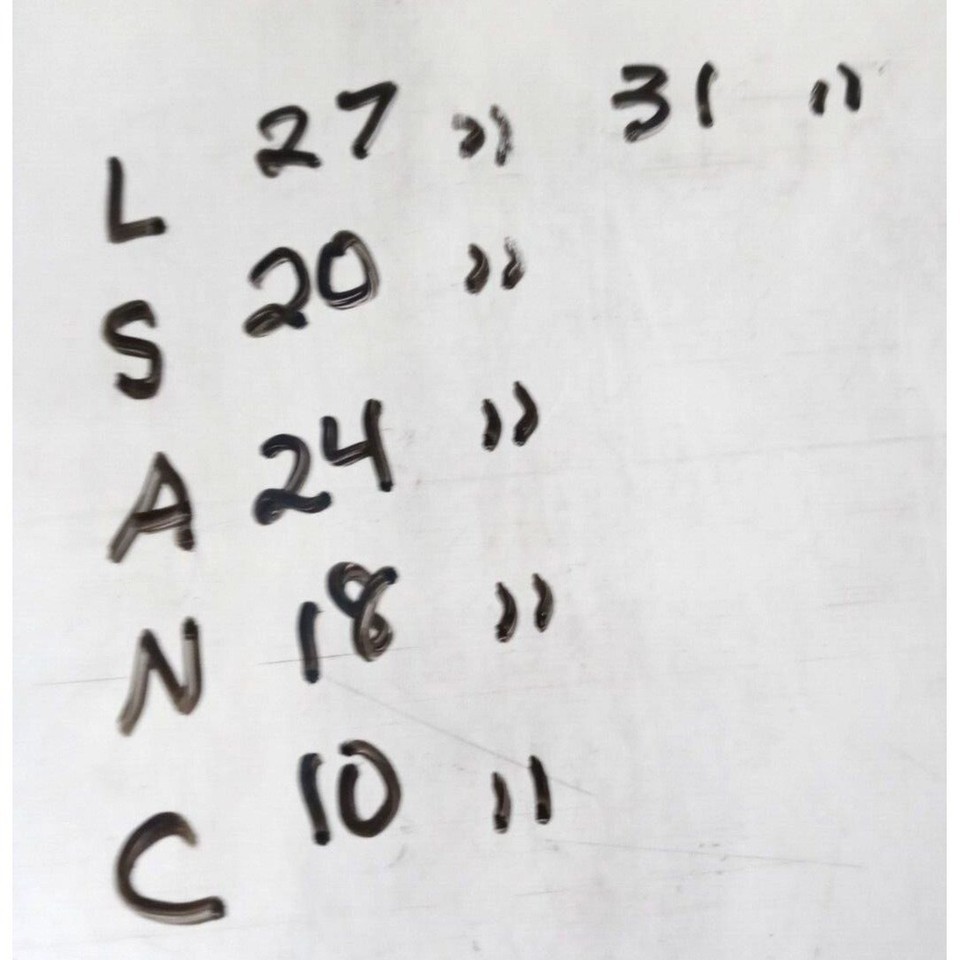 L 27 " 31 "
S 20 "
A 24 "
N 18 "
C 10 "